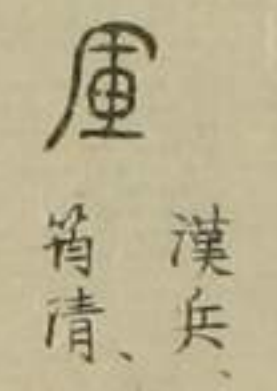 庫
漢兵、
筠清、